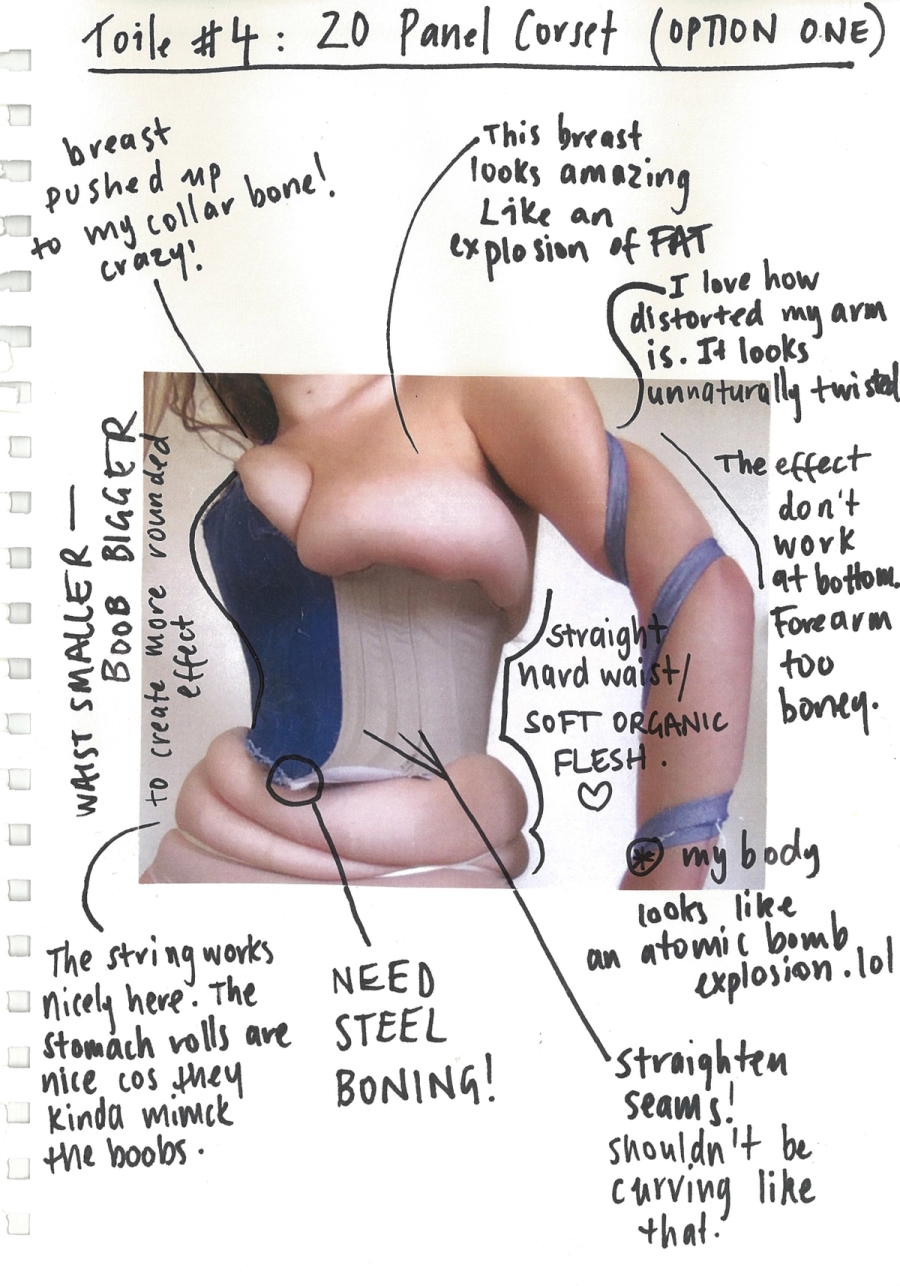 Toile #4: 20 Panel Corset (OPTION ONE)
breast
pushed up
to my collar bone!
crazy!
This breast
looks amazing
Like an
explosion of FAT
I love how
distorted my arm
is. It looks
unnaturally twisted
The effect
don't
work
at bottom.
Forearm
too
boney.
WAIST SMALLER —
BOOB BIGGER
to create more rounded
effect
straight
hard waist/
SOFT ORGANIC
FLESH.
my body
looks like
an atomic bomb
explosion.lol
The string works
nicely here. The
stomach rolls are
nice cos they
kinda mimick
the boobs.
NEED
STEEL
BONING!
straighten
seams!
shouldn't be
curving like
that.